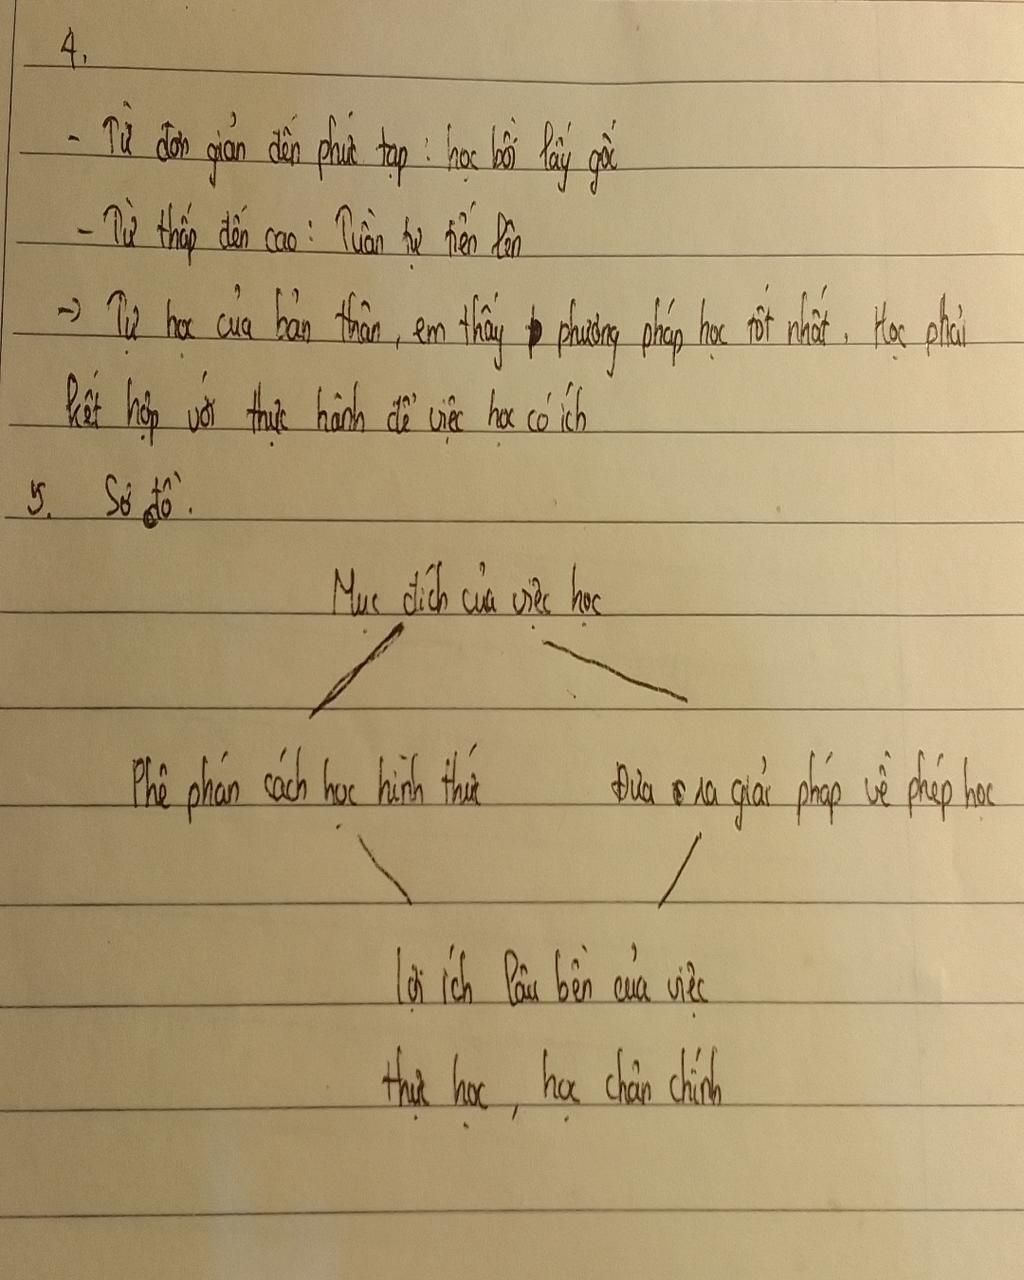 4.
- Từ đơn giản đến phức tạp : học bồi lấy gốc
- Từ thấp đến cao : Tuần tự tiến lên
-> Tự học của bản thân, em thấy phương pháp học tốt nhất. Học phải
kết hợp với thực hành để việc học có ích
5. Sơ đồ.
Mục đích của việc học
Phê phán cách học hình thức Đưa ra giải pháp về phép học
lợi ích lâu bền của việc
thực học, học chân chính